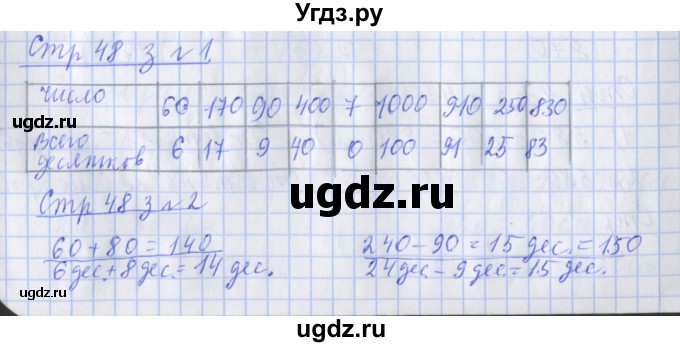 Угдз.ру
Стр 48 з № 1
число 60 170 90 400 7 1000 910 250 830
Всего десятков 6 17 9 40 0 100 91 25 83
ugdz.ru
ugdz.ru
ugdz.ru
Стр 48 з № 2
60 + 80 = 140
6 дес + 8 дес. = 14 дес.
240 - 90 = 15 дес. = 150
24 дес - 9 дес. = 15 дес.
ugdz.ru
ugdz.ru
ugdz.ru